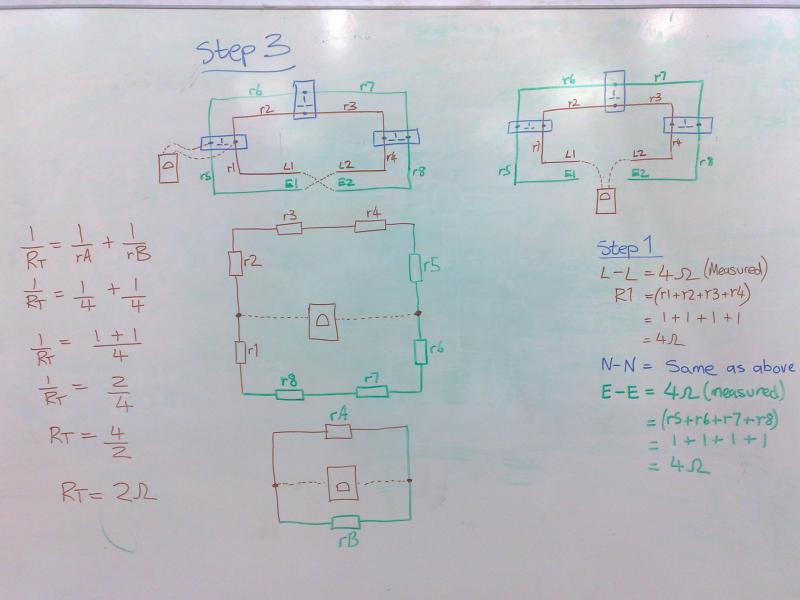 Step 3
r6 r7
r2 r3
r1 L1 L2 r4
r5 E1 E2 r8
r6 r7
r2 r3
r1 L1 L2 r4
r5 E1 E2 r8
r3 r4
r2 r5
r1 r6
r8 r7
rA
rB
1/RT = 1/rA + 1/rB
1/RT = 1/4 + 1/4
1/RT = 1+1/4
1/RT = 2/4
RT = 4/2
RT = 2Ω
Step 1
L-L = 4Ω (Measured)
R1 = (r1+r2+r3+r4)
= 1+1+1+1
= 4Ω
N-N = Same as above
E-E = 4Ω (measured)
= (r5+r6+r7+r8)
= 1+1+1+1
= 4Ω